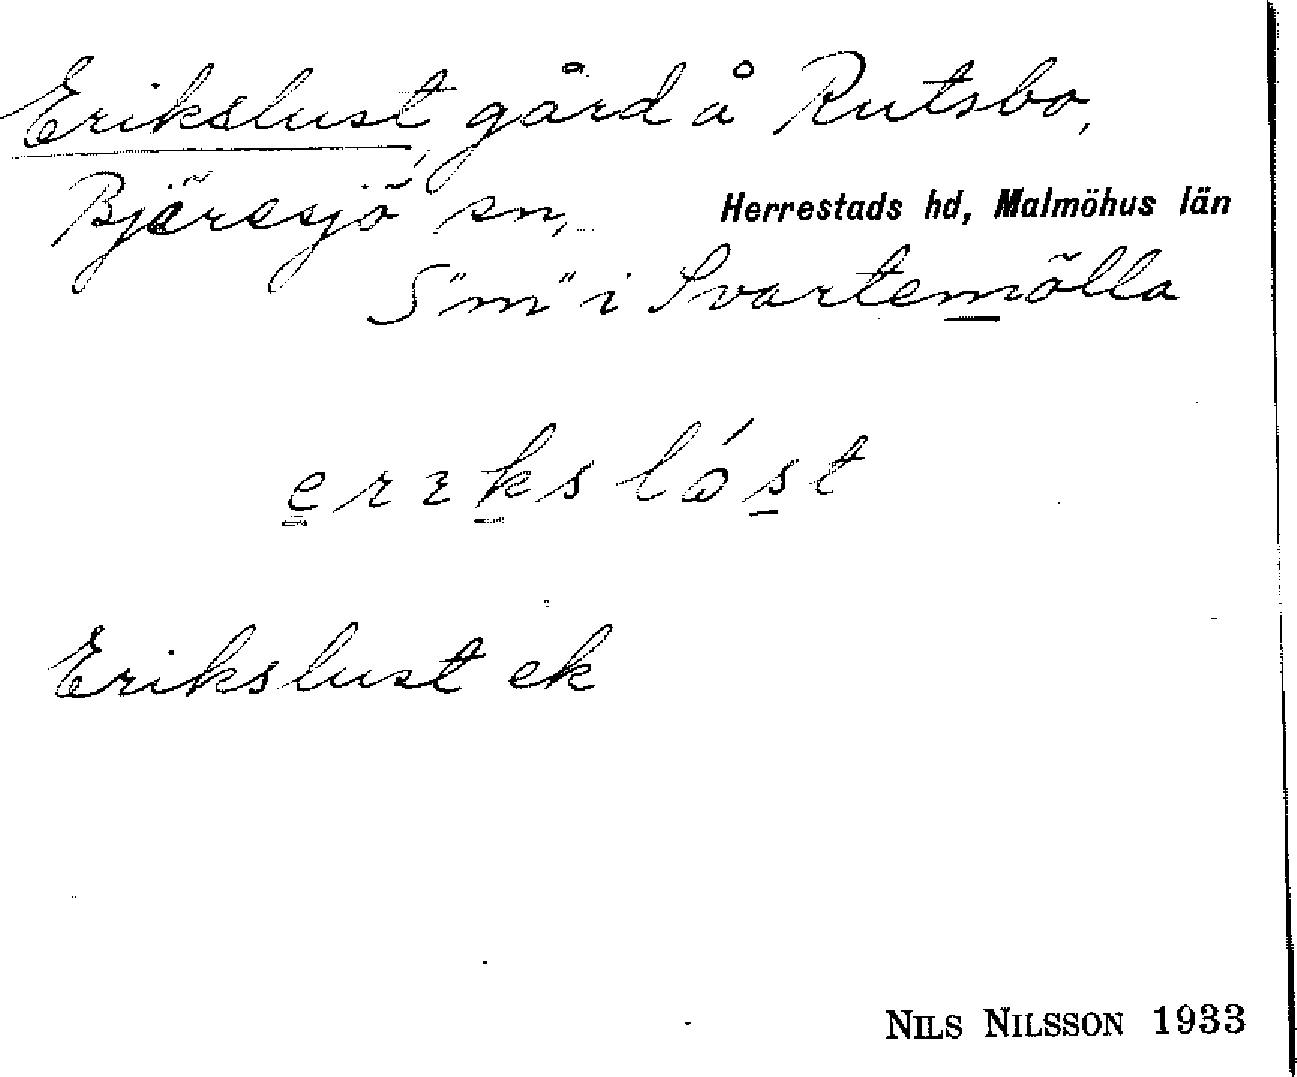 Erikslust, gård å Rutsbo,
Bjäresjö sn, Herrestads hd, Malmöhus län
S "m" i Svartemölla
erɩkslóst
Erikslust ek
NILS NILSSON 1933